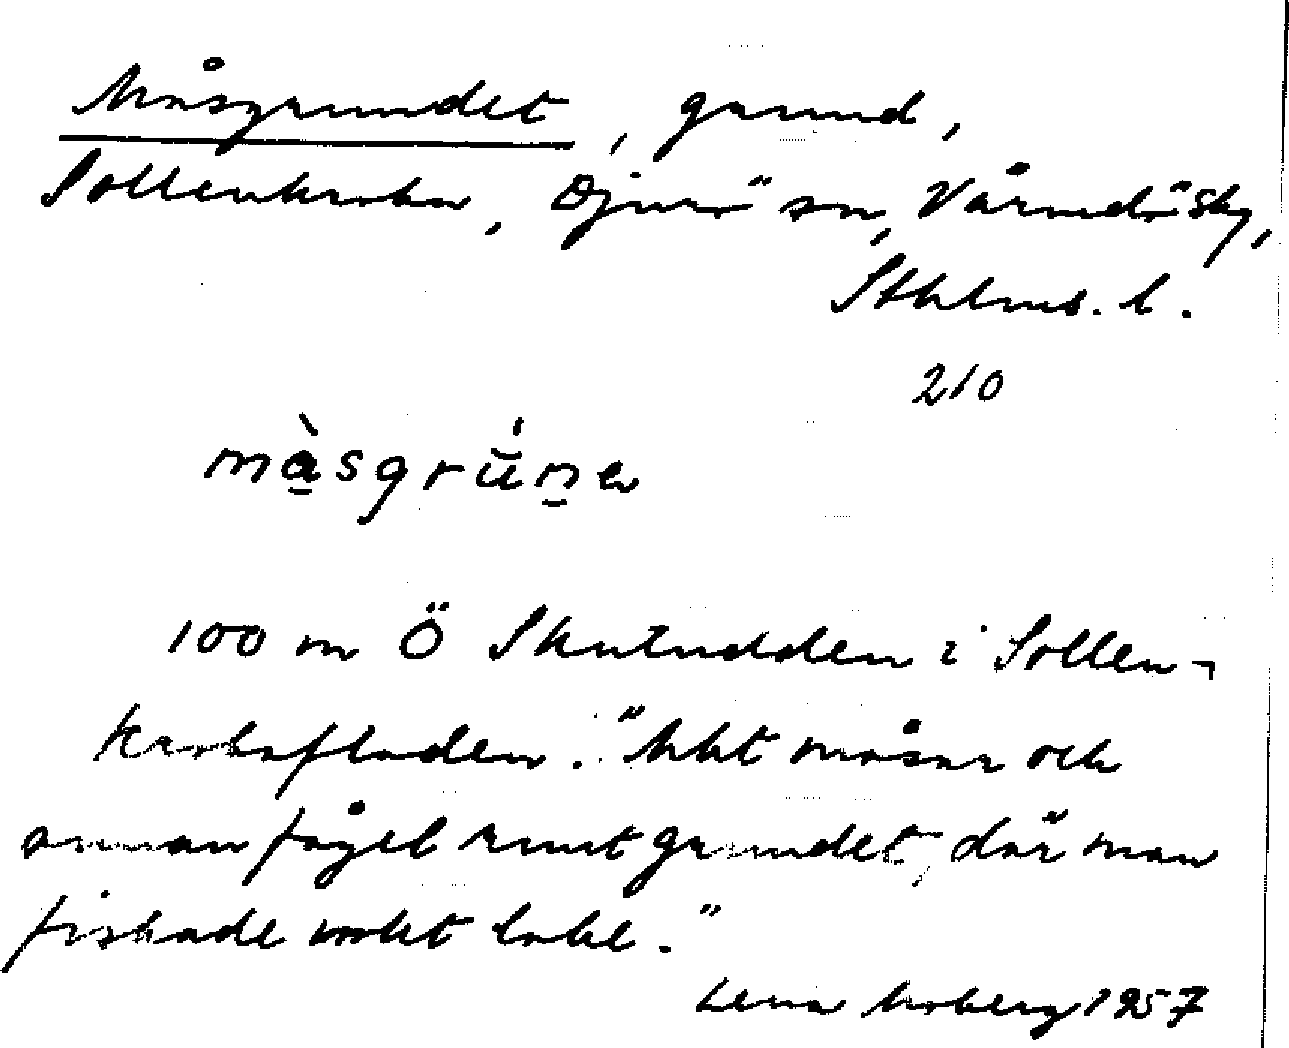 Måsgrundet, grund,
Sollenkroka, Djurö sn, Värmdö skg,
Sthlms. l.
210
mȧ̀sgrún̲a
100 m Ö Skutudden i Sollen-
krokafladen. "Mkt måsar och
annan fågel runt grundet, där man
fiskade mkt lake."
Lena Moberg 1957